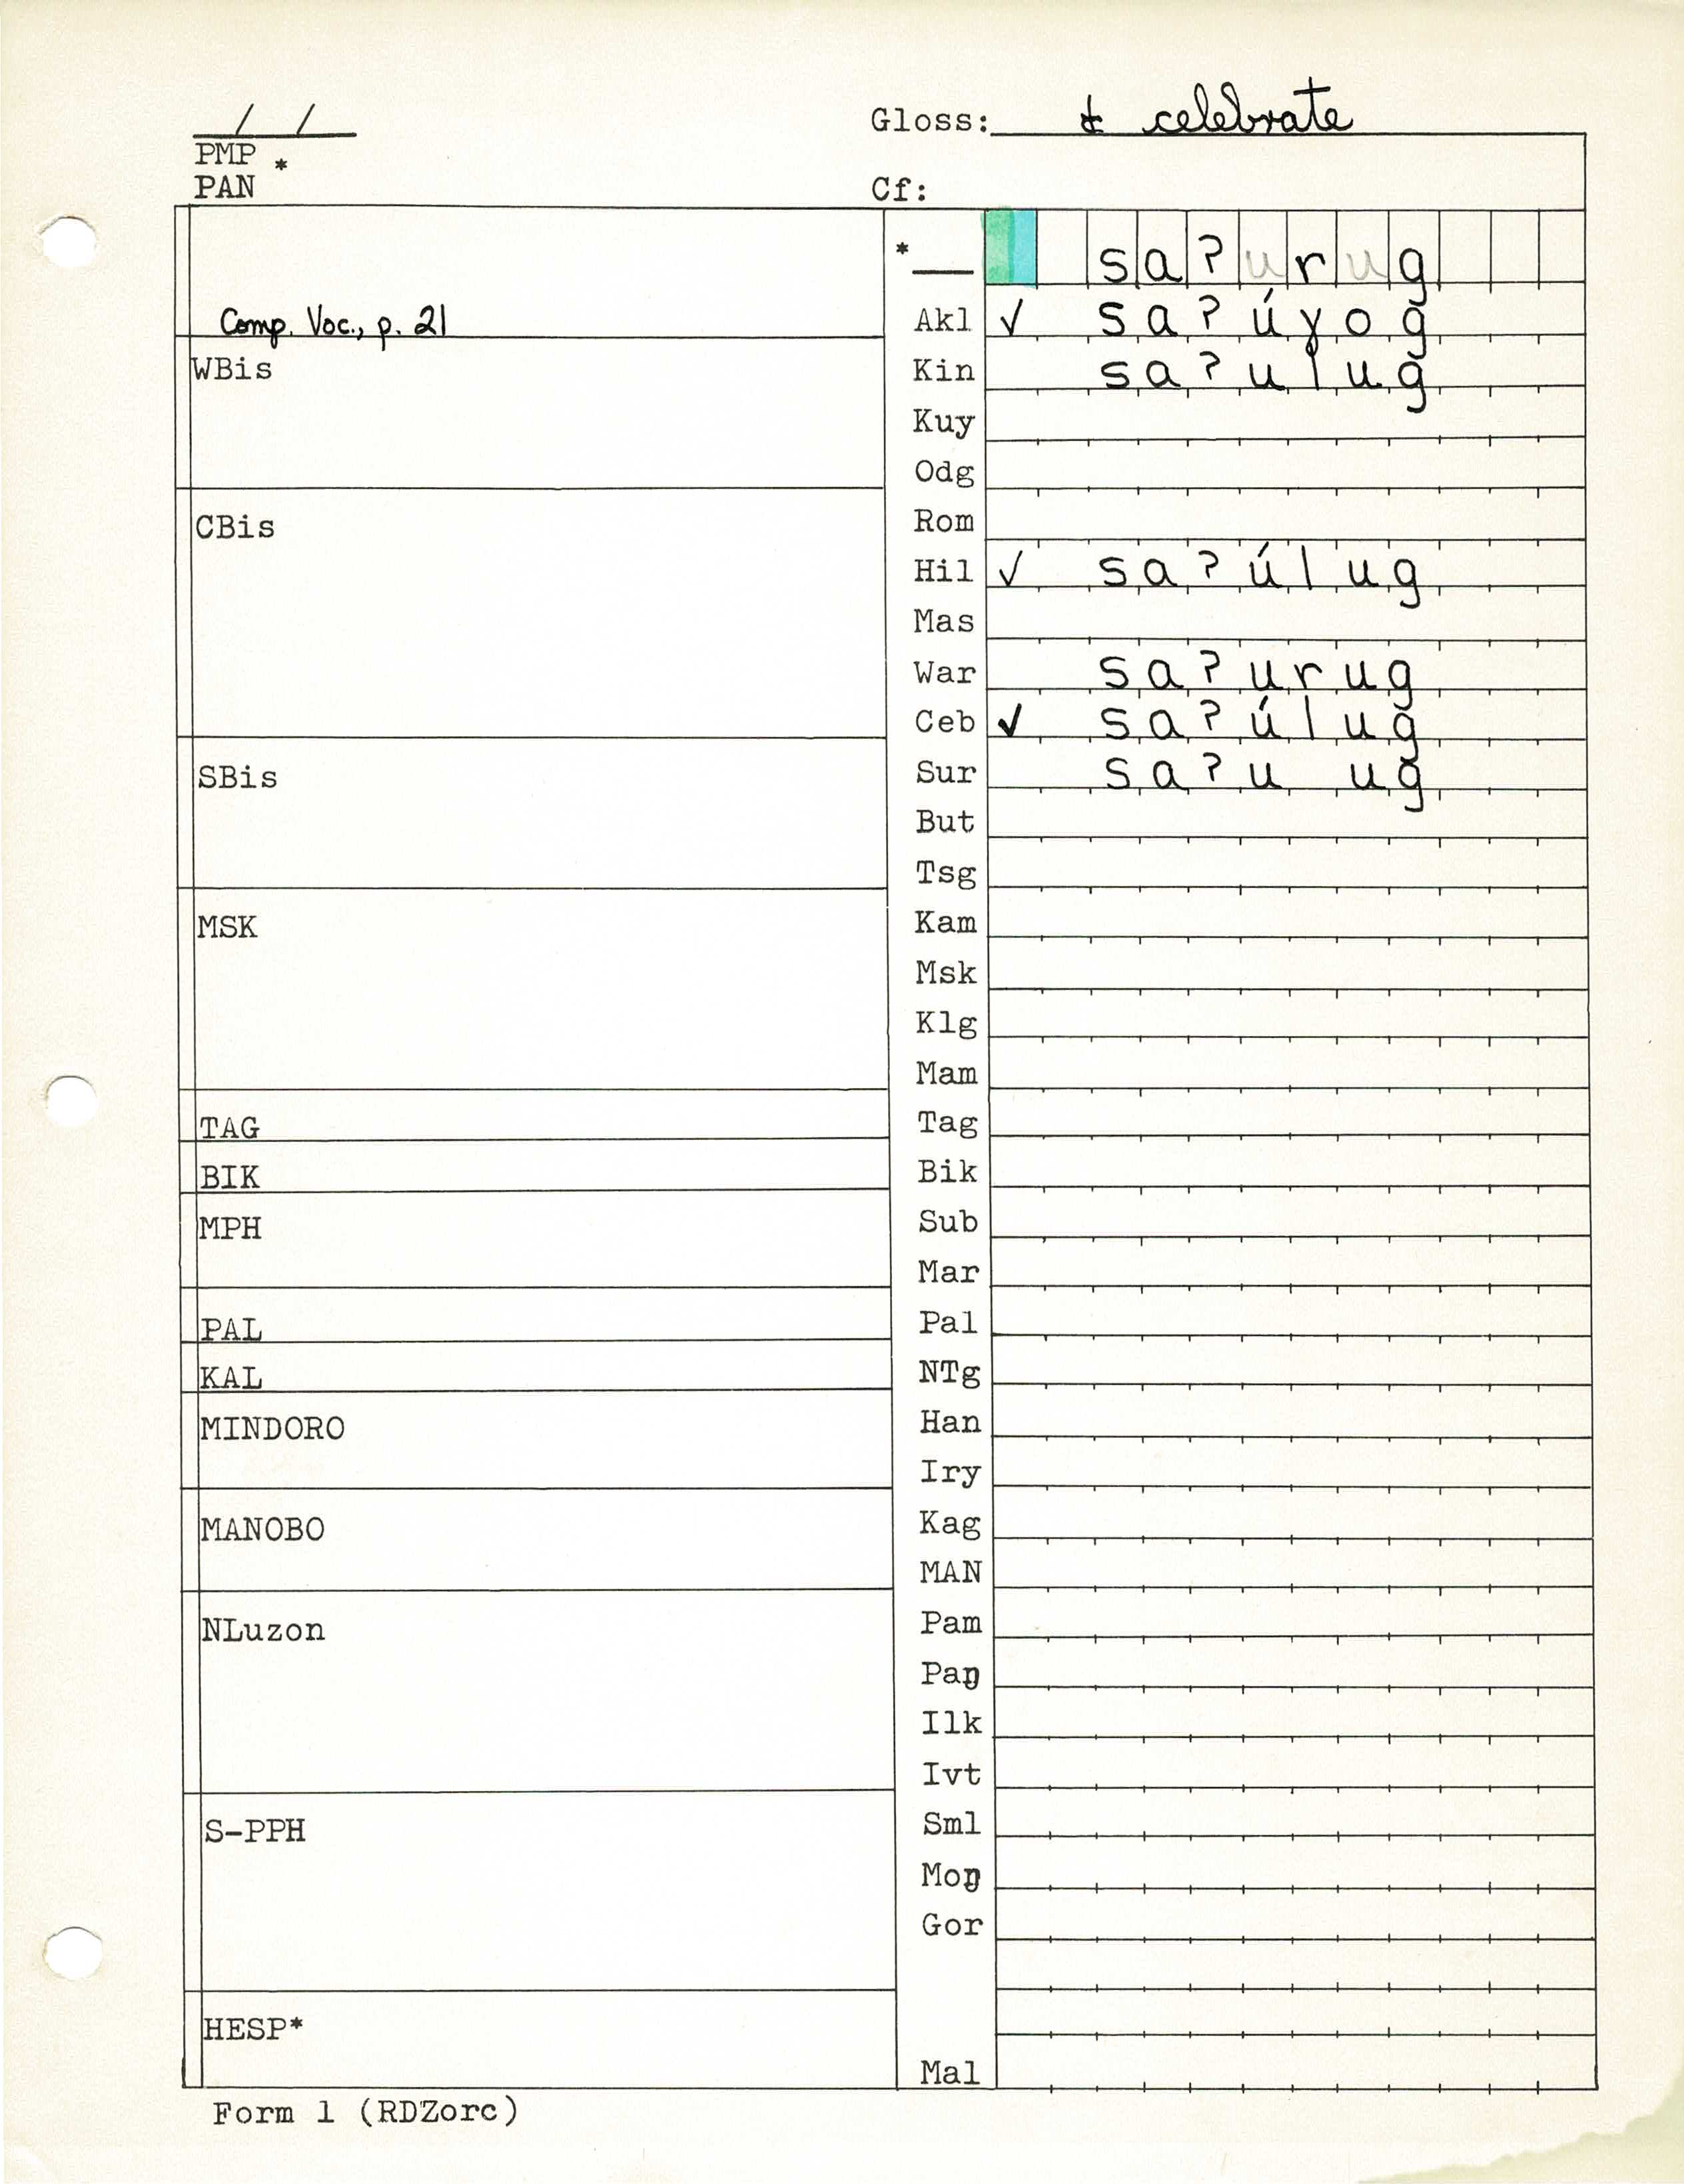 / /
Gloss: to celebrate
PMP *
PAN
Cf:
* sa?urug
Comp. Voc., p. 21
Akl ✓ sa?úɣog
WBis
Kin sa?ulug
Kuy
Odg
CBis
Rom
Hil ✓ sa?úlug
Mas
War sa?urug
Ceb ✓ sa?úlug
SBis
Sur sa?u ug
But
Tsg
MSK
Kam
Msk
Klg
Mam
TAG
Tag
BIK
Bik
MPH
Sub
Mar
PAL
Pal
KAL
NTg
MINDORO
Han
Iry
MANOBO
Kag
MAN
NLuzon
Pam
Paŋ
Ilk
Ivt
S-PPH
Sml
Moŋ
Gor
HESP*
Mal
Form 1 (RDZorc)